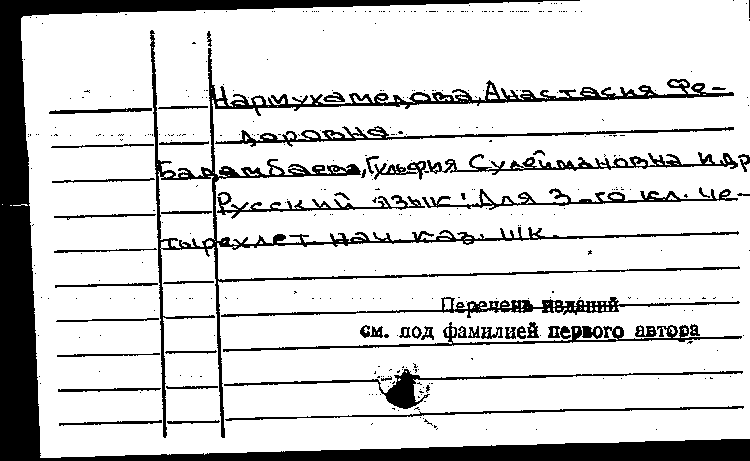 Нармухамедова, Анастасия Фе-
доровна.
Бадамбаева, Гульфия Сулеймановна и др
Русский язык: Для 3-го кл. че-
тырехлет. нач. каз. шк.
Перечень изданий
см. под фамилией первого автора